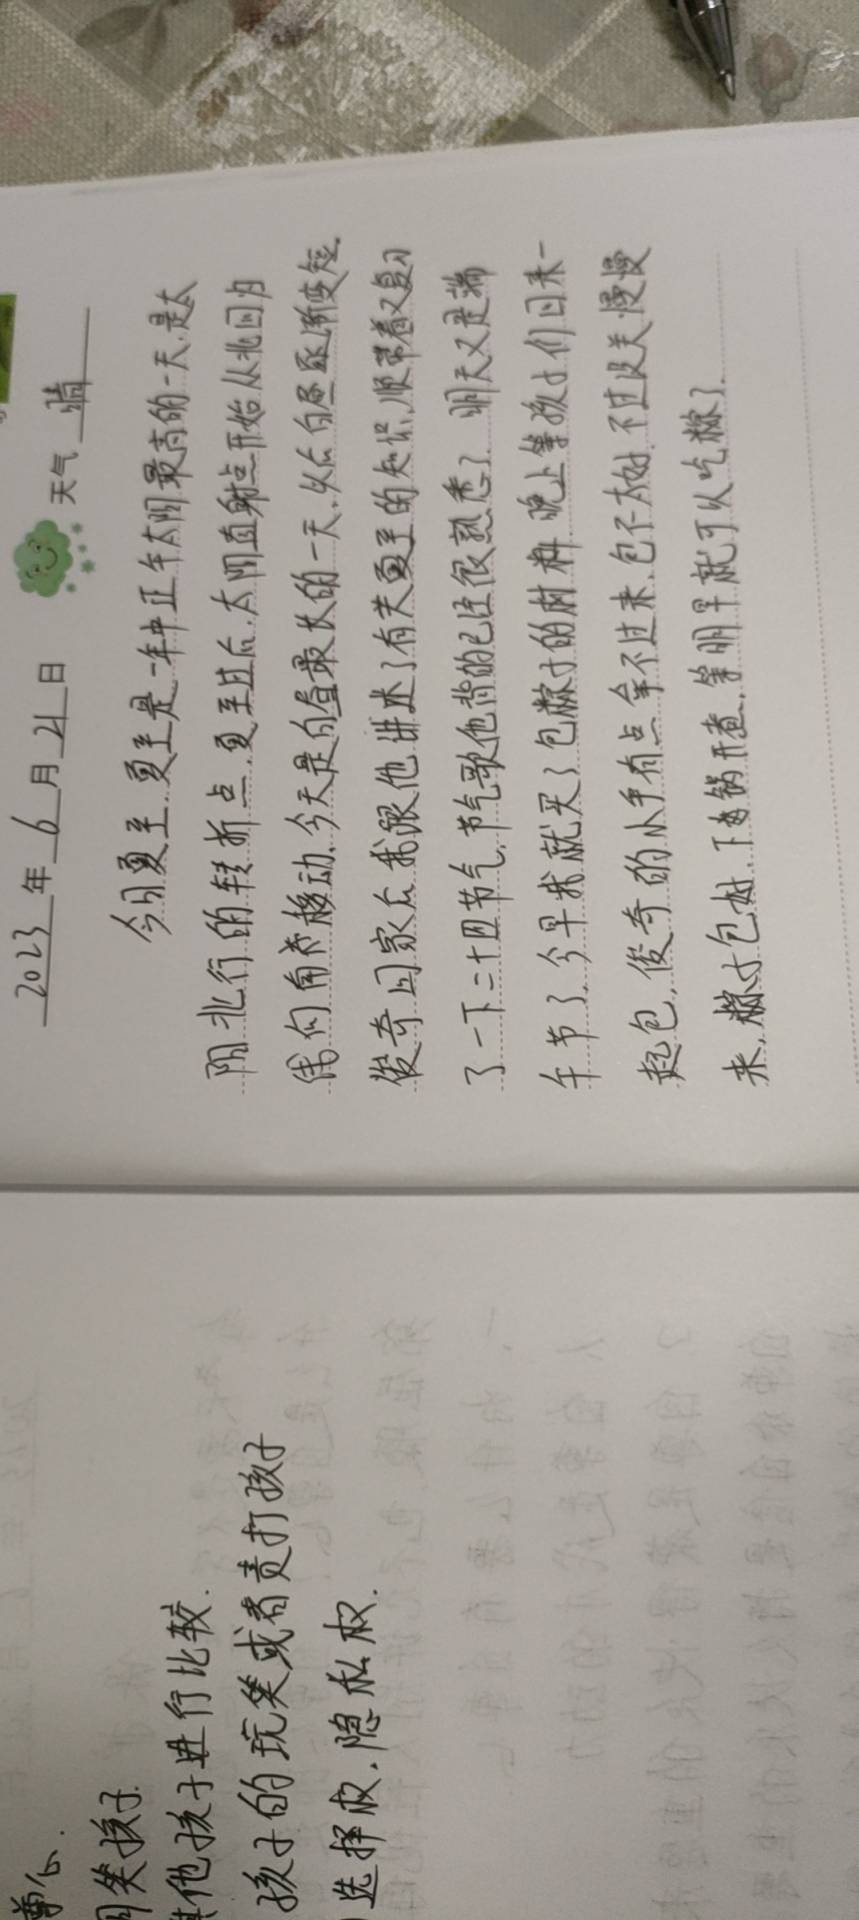 尊心.
笑孩子.
其他孩子进行比较.
孩子的玩笑或者责打孩子
选择权.隐私权.
2023年6月21日 天气 晴
今日夏至.夏至是一年中正午太阳最高的一天.是太
阳北行的转折点.夏至过后.太阳直射点开始从北回归
线向南移动.今天是白昼最长的一天.以后白昼逐渐变短.
俊奇回家后我跟他讲述了有关夏至的知识.顺带着又复习
了一下二十四节气.节气歌他背的已经很熟悉了.明天又是端
午节了.今早我就买了包粽子的材料 晚上等孩子们回来一
起包.俊奇的小手有点拿不过来.包不太好.不过没关.慢慢
来.粽子包好.下锅开煮.等明早就可以吃粽了.